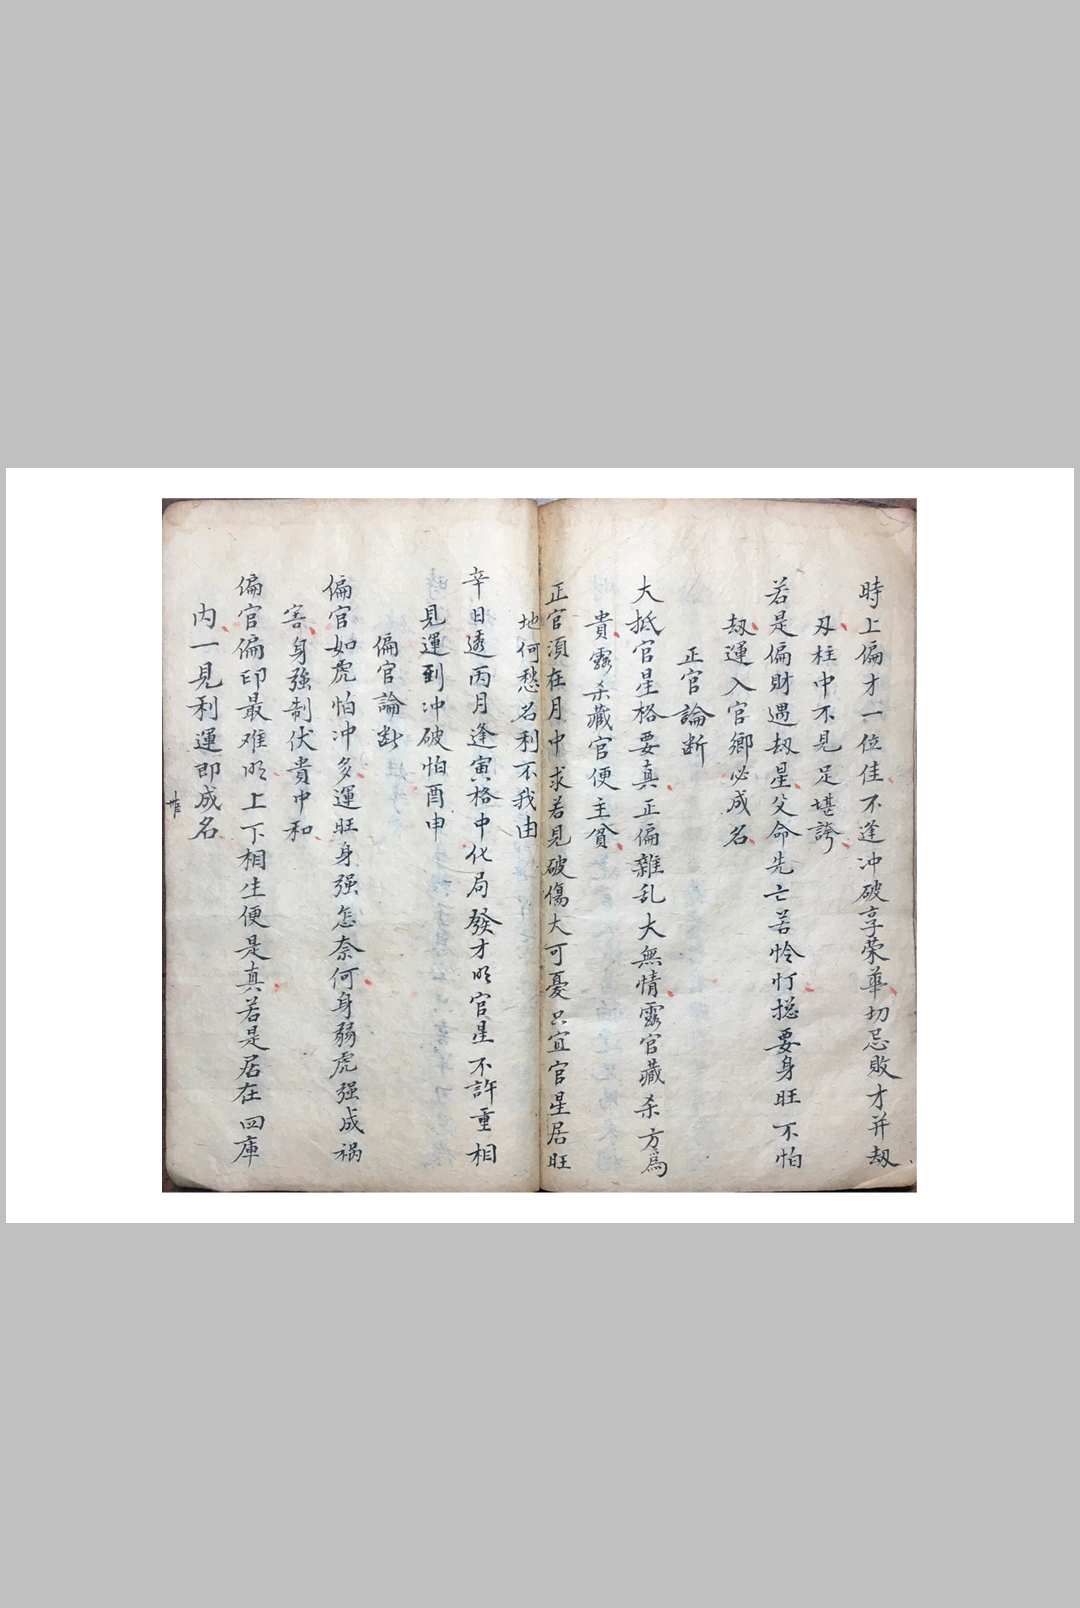 時上偏才一位佳不逢冲破享荣華切忌敗才并刼
刃柱中不見足堪誇
若是偏財遇刼星父命先亡苦怜仃摠要身旺不怕
刼運入官鄉必成名
正官論断
大抵官星格要真正偏雜乱大無情露官藏杀方爲
貴露杀藏官便主貧
正官須在月中求若見破傷大可憂只宜官星居旺
地何愁名利不我由
辛日透丙月逢寅格中化局發才明官星不許重相
見運到冲破怕酉申
偏官論断
偏官如虎怕冲多運旺身强怎奈何身弱虎强成祸
害身強制伏貴中和
偏官偏印最难明上下相生便是真若是居在四庫
内一見利運即成名